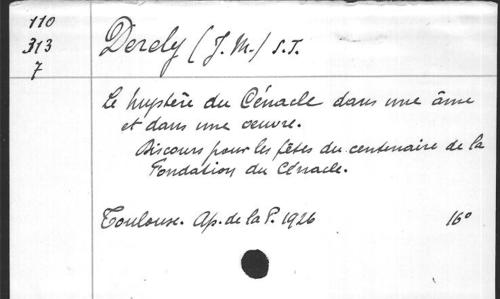 110
313
7
Derely (J.M.) S.J.
Le mystère du Cénacle dans une âme
et dans une œuvre.
Discours pour les fêtes du centenaire de la
Fondation du Cénacle.
Toulouse. Ap. de la P. 1926 16°